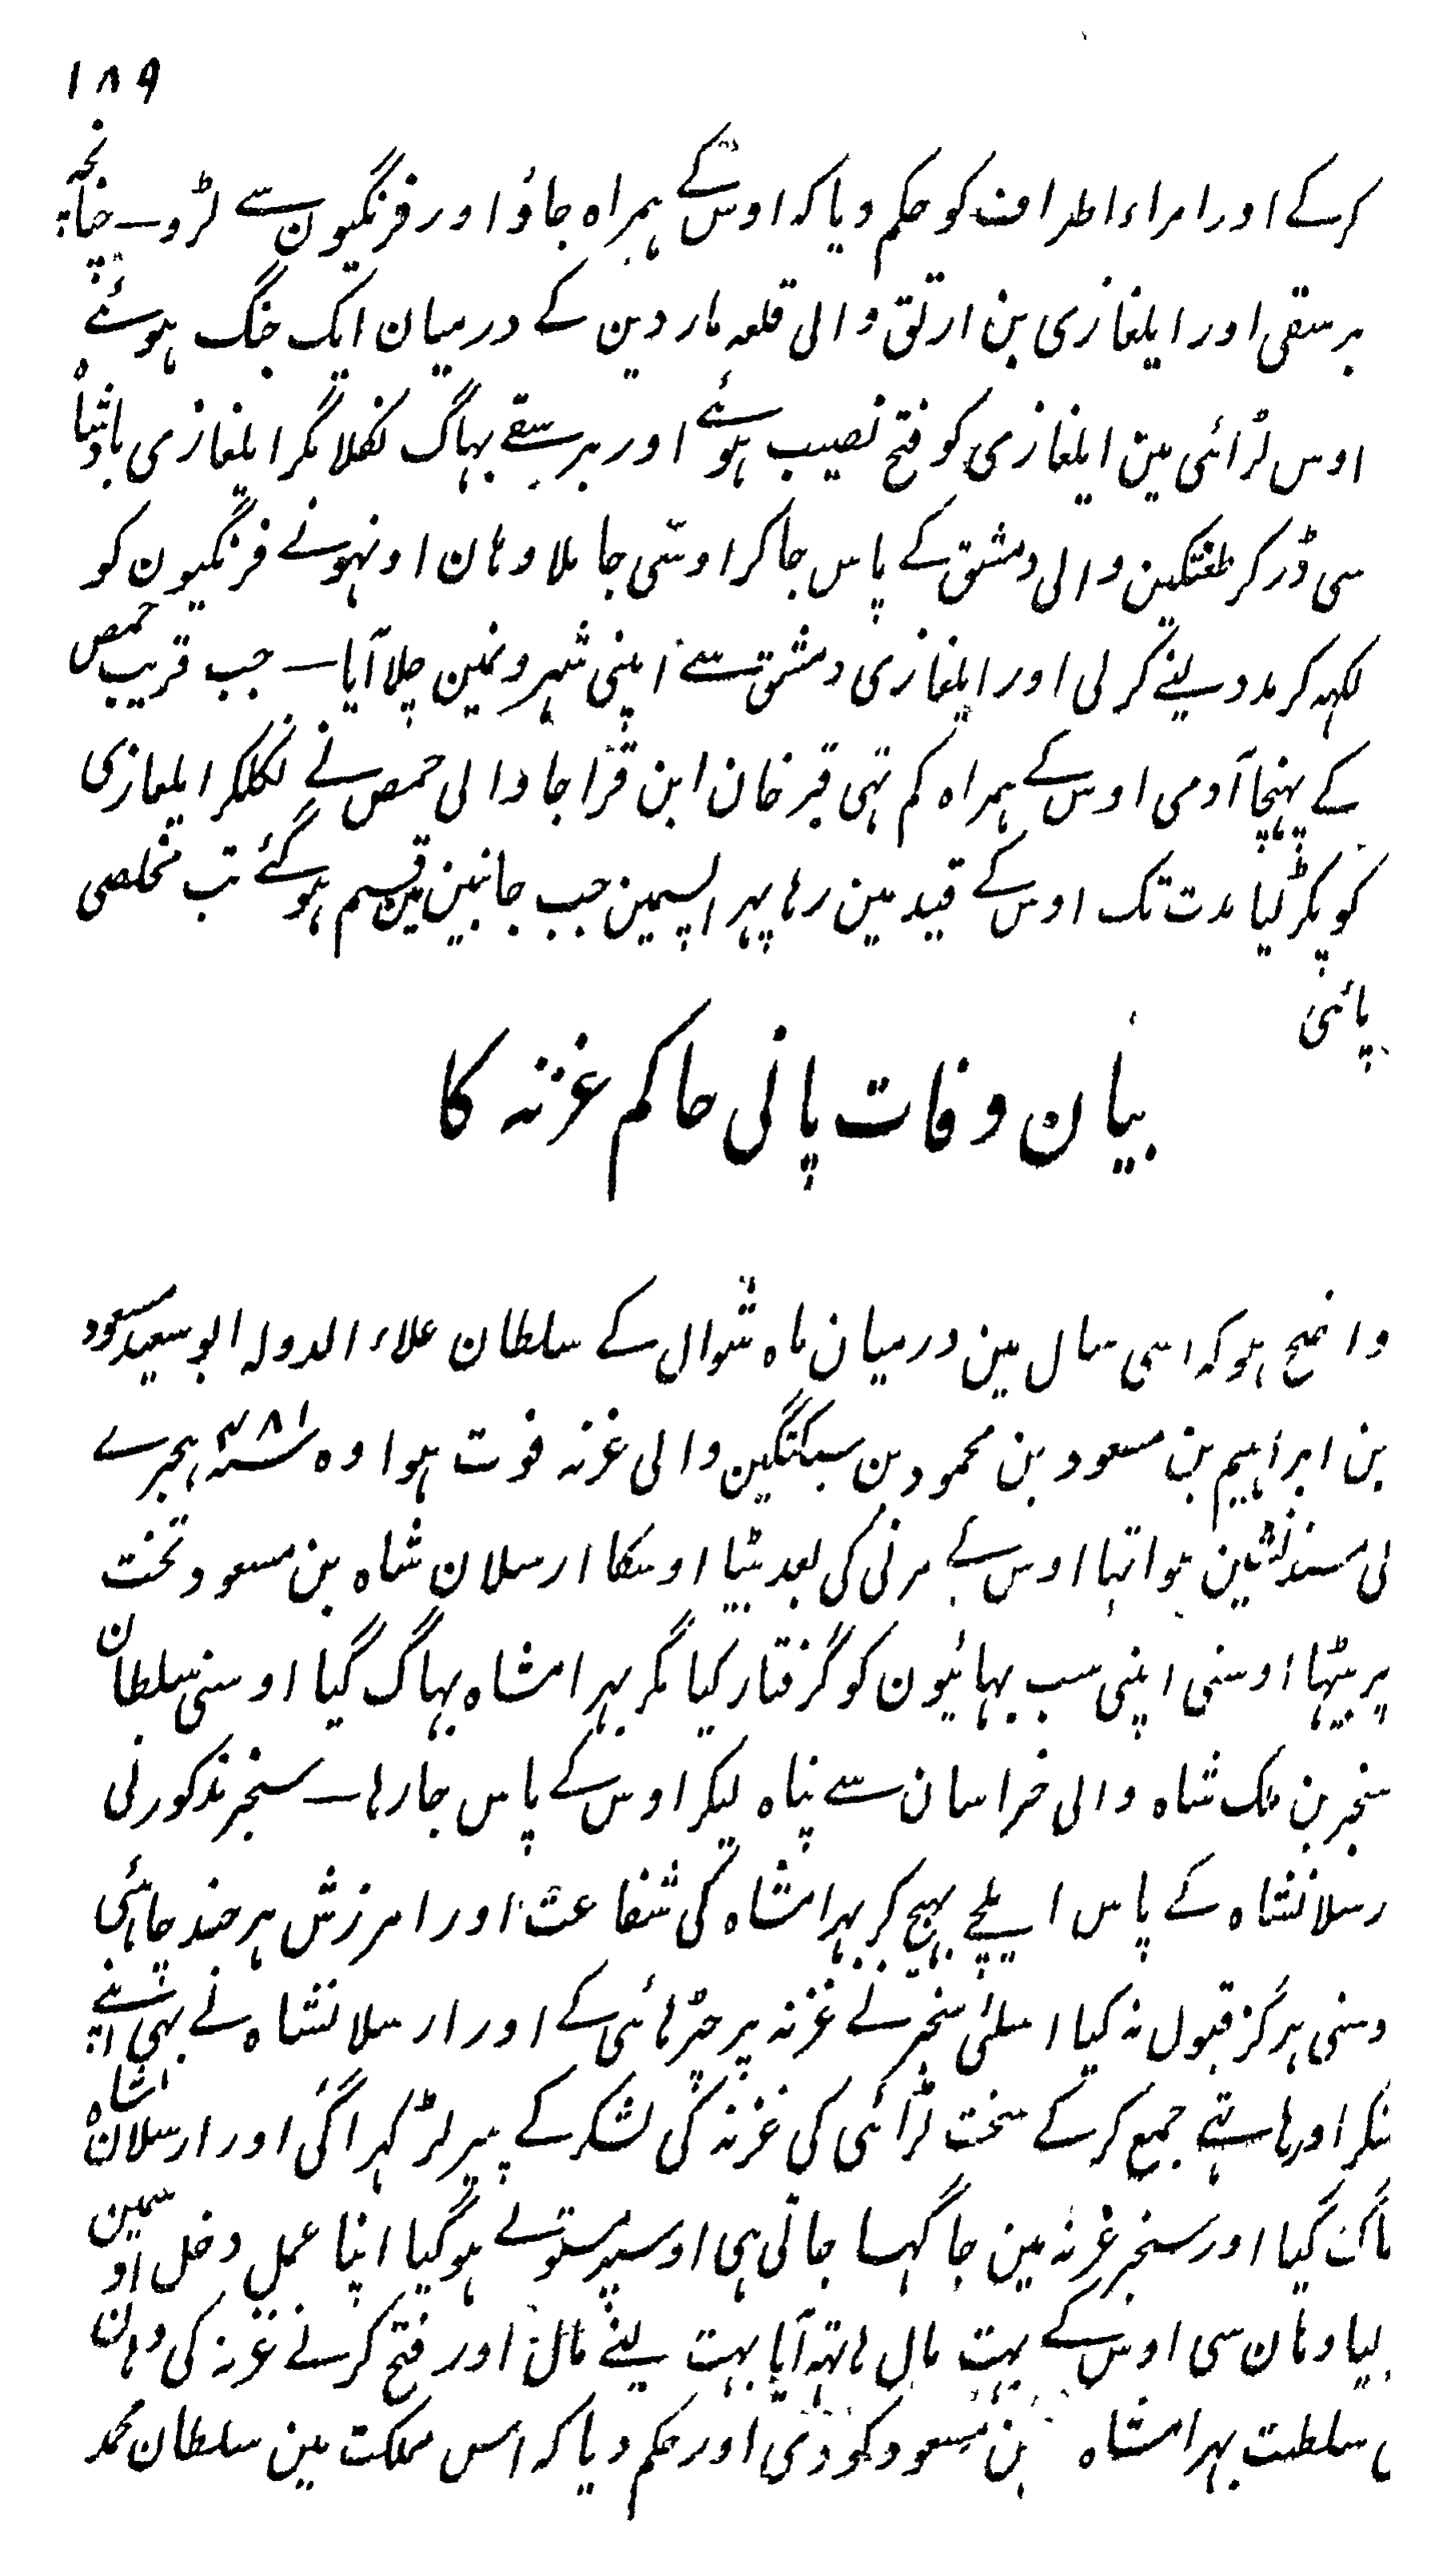 ۱۸۹
کرکے اور امراء اطراف کو حکم دیا کہ اوس کے ہمراہ جاؤ اور فرنگیون سے لڑو ــ چنانچہ
برسقی اور ایلغازی بن ارتق والی قلعہ ماردین کے درمیان ایک جنگ ہوئے
اوس لڑائی مین ایلغازی کو فتح نصیب ہوئے اور برسقے بہاگ نکلا مگر ایلغازی بادشاہ
سی ڈر کر طغتکین والی دمشق کے پاس جاکر اوسی جا ملا وہان اونہونے فرنگیون کو
لکہہ کر مدد لینے کرلی اور ایلغازی دمشق سے اپنی شہرونمین چلا آیا ــ جب قریب حمص
کے پہنچا آدمی اوس کے ہمراہ کم تہی قیرخان ابن قراجا والی حمص نے نکلکر ایلغازی
کو پکڑ لیا مدت تک اوس کے قید مین رہا پہر اپسمین جب جانبین مین قسم ہوگئے تب مخلصی
پائی
بیان وفات پانی حاکم غزنہ کا
واضح ہو کہ اسی سال مین درمیان ماہ شوال کے سلطان علاء الدولہ ابو سعید مسعود
بن ابراہیم بن مسعود بن محمود بن سبکتگین والی غزنہ فوت ہوا وہ سنہ ۴۸۱ ہجرے
لی مسند نشین ہوا تہا اوس کے مرنی کی بعد بیٹا اوسکا ارسلان شاہ بن مسعود تخت
پر بیٹہا اوسنی اپنی سب بہائیون کو گرفتار کیا مگر بہرامشاہ بہاگ گیا اوسنی سلطان
سنجر بن ملک شاہ والی خراسان سے پناہ لیکر اوس کے پاس جا رہا ــ سنجر مذکور نی
رسلانشاہ کے پاس ایلچے بہیج کر بہرامشاہ کی شفاعت اور امرزش ہر چند چاہئی
وسنی ہرگز قبول نہ کیا اسلئی سنجر نے غزنہ پر چڑہائی کے اور ارسلانشاہ نے بہی اپنے
شکر اور ہاتہے جمع کرکے سخت لڑائی کی غزنہ کی لشکر کے پیر لڑ کہڑا گئی اور ارسلان شاہ
ہاگ گیا اور سنجر غزنہ مین جا گہسا جاتی ہی اوسپر مستولے ہوگیا اپنا عمل دخل اوسمین
لیا وہان سی اوس کے بہت مال ہاتہہ آیا بہت لینے مال اور فتح کرنے غزنہ کی وہان
سلطنت بہرامشاہ بن مسعود کو دی اور حکم دیا کہ اس مملکت مین سلطان محمد